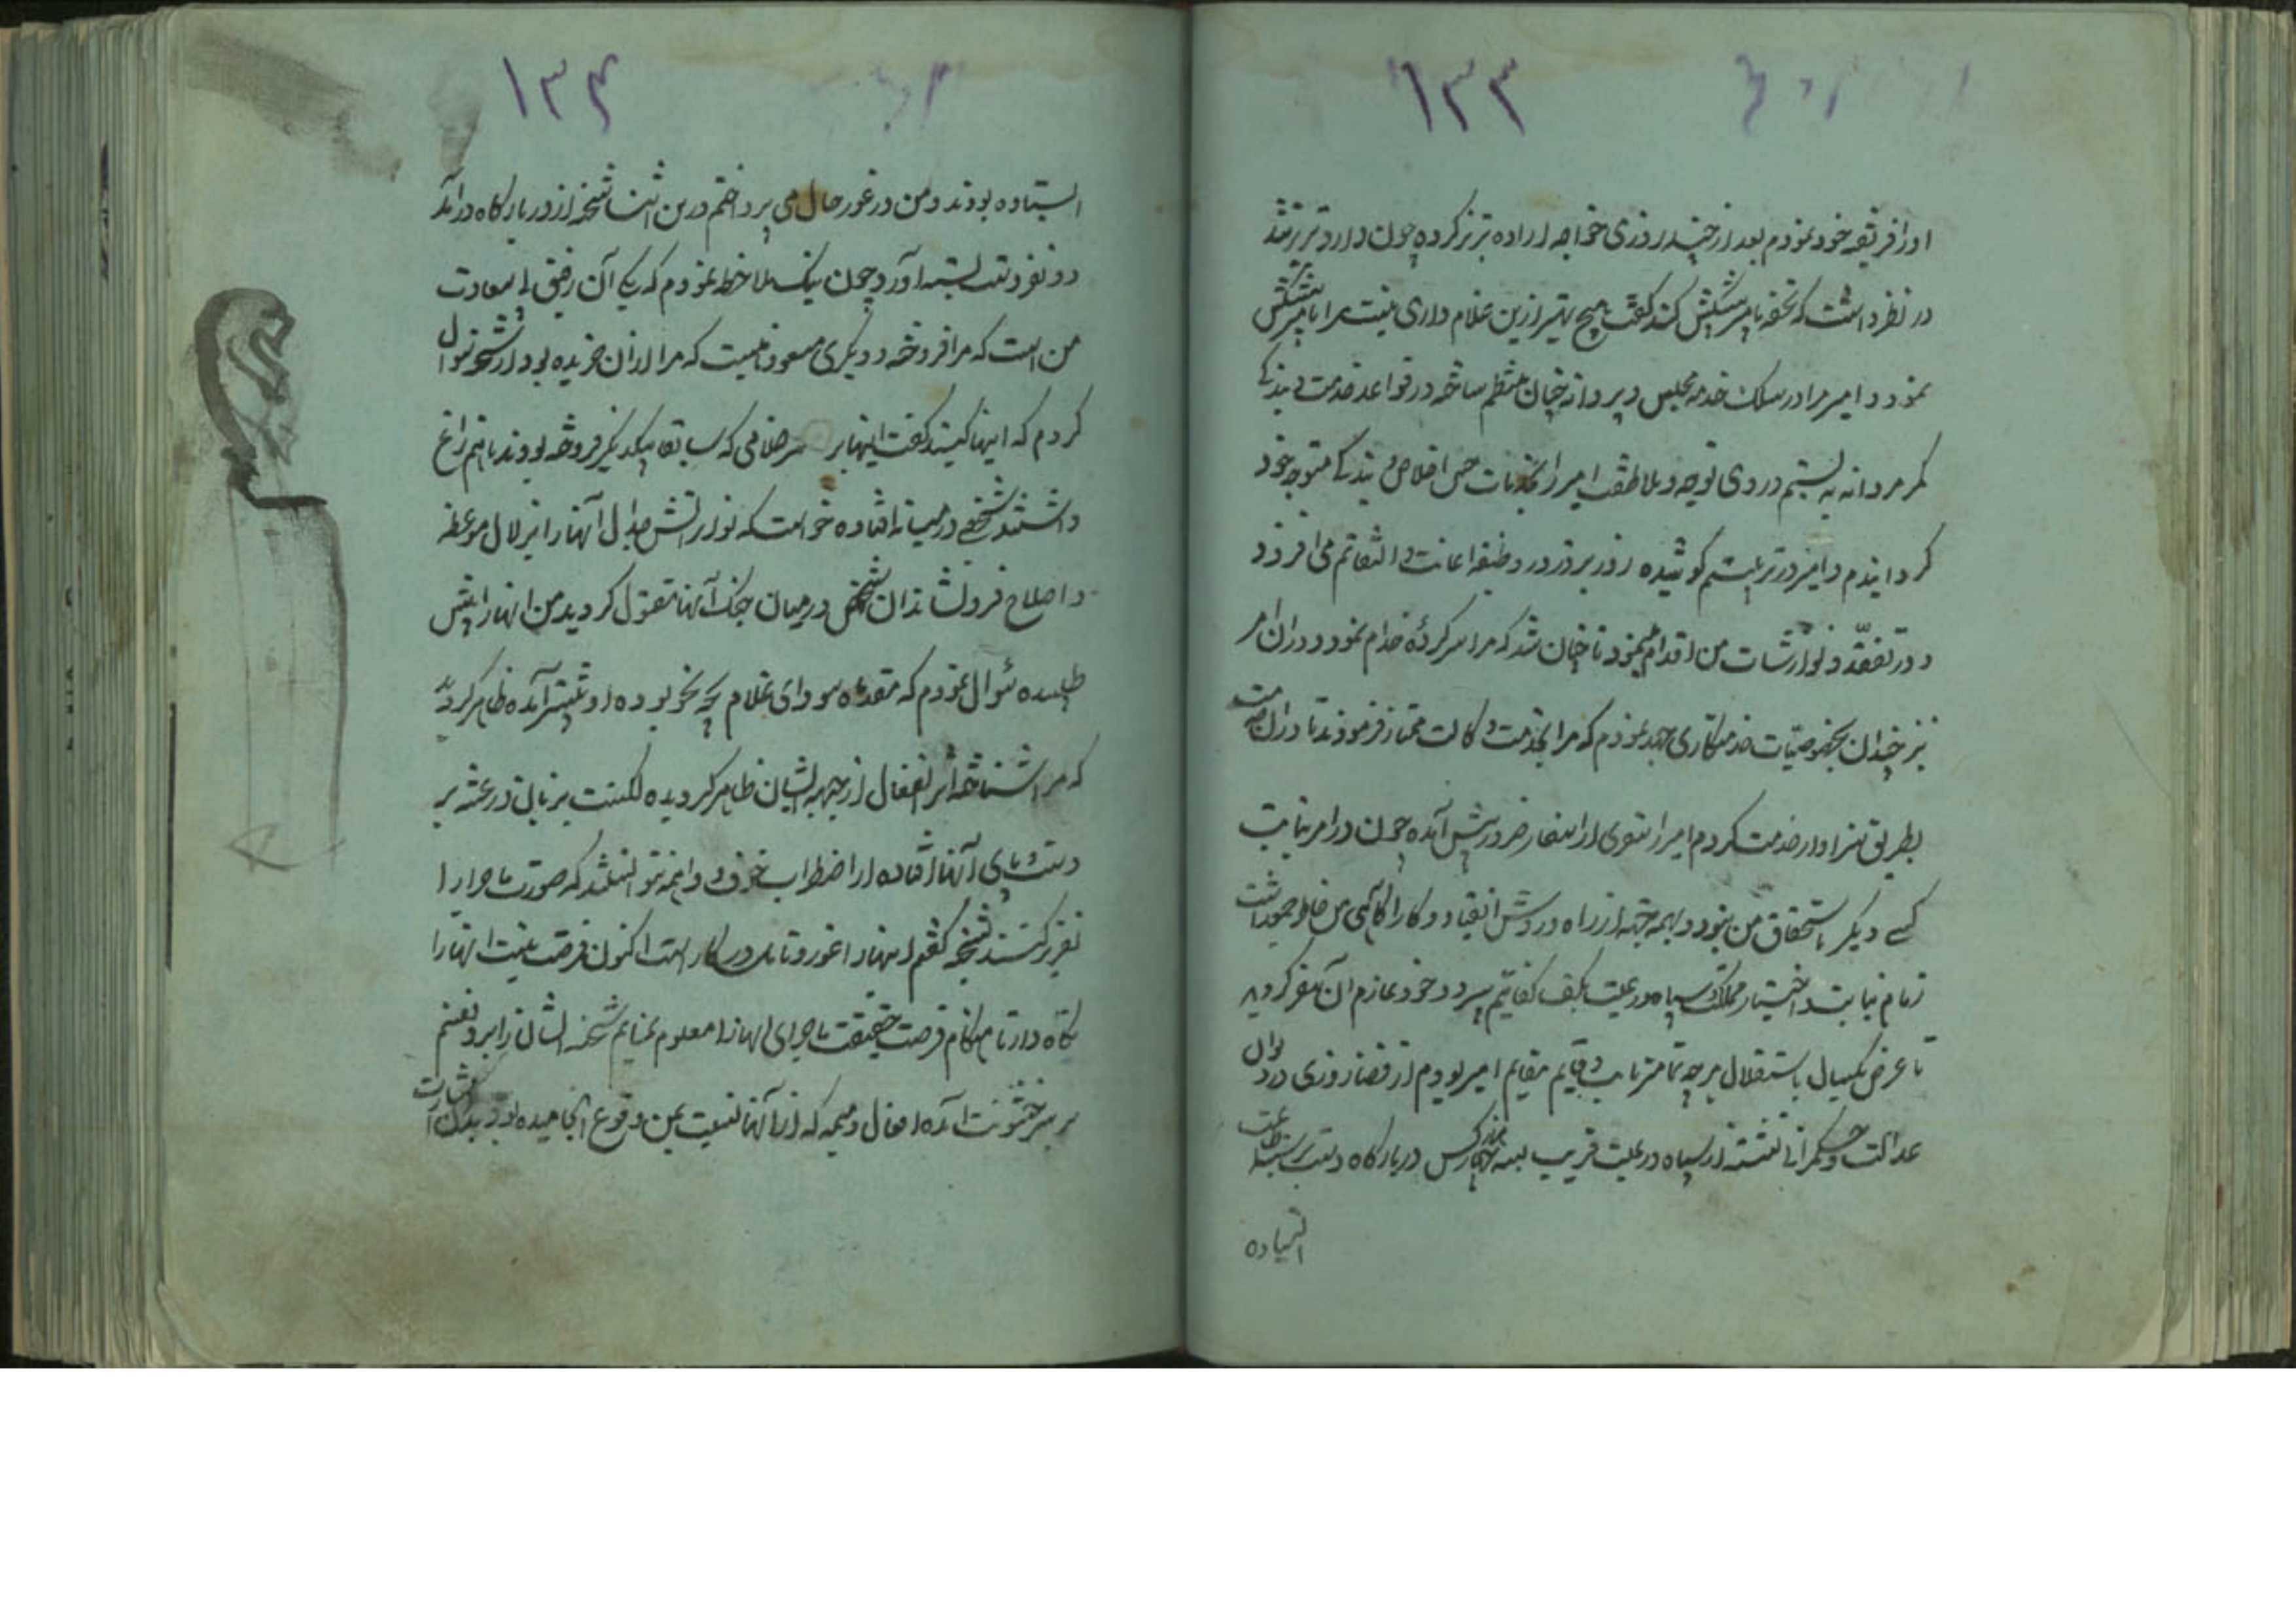 ۱۳۳
او را فریفته خود نمودم بعد از چند روزی خواجه اراده تبریز کرده چون وارد تبریز شد
در نظر داشت که تحفه بامیر پیشکش کند گفت هیچ بهتر ازین غلام داری نیست مرا بامیر پیشکش
نمود و امیر مرا در سلک خدمه مجلس و پروانه چنان منتظم ساخته در قواعد خدمت و بندگی
کمر مردانه به بستم و روی توجه و ملاطفت امیر را بخدمات حسن اخلاص و بندگی متوجه خود
گردانیدم و امیر در تربیتم کوشیده روز بروز در وظیفه اعانت و التفاتم می افزود
و در تفقد و نوازشات من اقدام مینمود تا چنان شد که مرا سرکرده خدام نمود و در ان امر
نیز چندان بخصوصیات خدمتکاری جهد نمودم که مرا بخدمت وکالت ممتاز فرمودند تا در ان خدمت
بطریق سزاوار خدمت کردم امیر را سفری از اسفار ضرور پیش آمده چون در امر نیابت
کسی دیگر باستحقاق من نبود و بهمه جهة از راه و روش انقیاد و کار آگاهی من خاطر جمع داشت
زمام نیابت و اختیار مملکت و سپاه و رعیت بکف کفایتم سپرد و خود عازم آن سفر گردید
تا عرض یکسال باستقلال هر چه تمامتر نایب و قایم مقام امیر بودم از قضا روزی در دیوان
عدالت و حکمرانی نشسته از سپاه و رعیت قریب بسه چهار هزار کس در بارگاه دست بر سینه اطاعت
ایستاده
۱۳۴
ایستاده بودند و من در غور حال می پرداختم درین اثنا شحنه از در بارگاه درآمد
دو نفر دست بسته آورد چون نیک ملاحظه نمودم که یکی آن رفیق بی سعادت
من است که مرا فروخته و دیگری مسعود نامیست که مرا از ان خریده بود از شحنه سوال
کردم که اینها کیستند گفت اینها بر سر غلامی که سابقا بیکدیگر فروخته بودند باهم نزاع
داشتند شخصی در میانه افتاده خواست که نور آتش جدال آنها را بزلال موعظه
و اصلاح فرونشاند آن شخص در میان جنگ آنها مقتول گردید من انها را پیش
طلبیده سوال نمودم که مقدمه سودای غلام بچه نحو بوده او پیشتر آمده ظاهر گردید
که مرا شناخته اثر انفعال از جبهه ایشان ظاهر گردیده لکنت بر زبان و رعشه بر
دست و پای آنها افتاده از اضطراب خوف و واهمه نتوانستند که صورت ماجرا را
تقریر کنند بشحنه گفتم اینها را غور و تامل در کار است اکنون فرصت نیست انها را
نگاه دار تا هنگام فرصت حقیقت ماجرای اینها را معلوم نمایم شحنه ایشان را برد نفسم
بر سر خشونت آمده افعال ذمیمه که از آنها نسبت بمن وقوع انجامیده بود